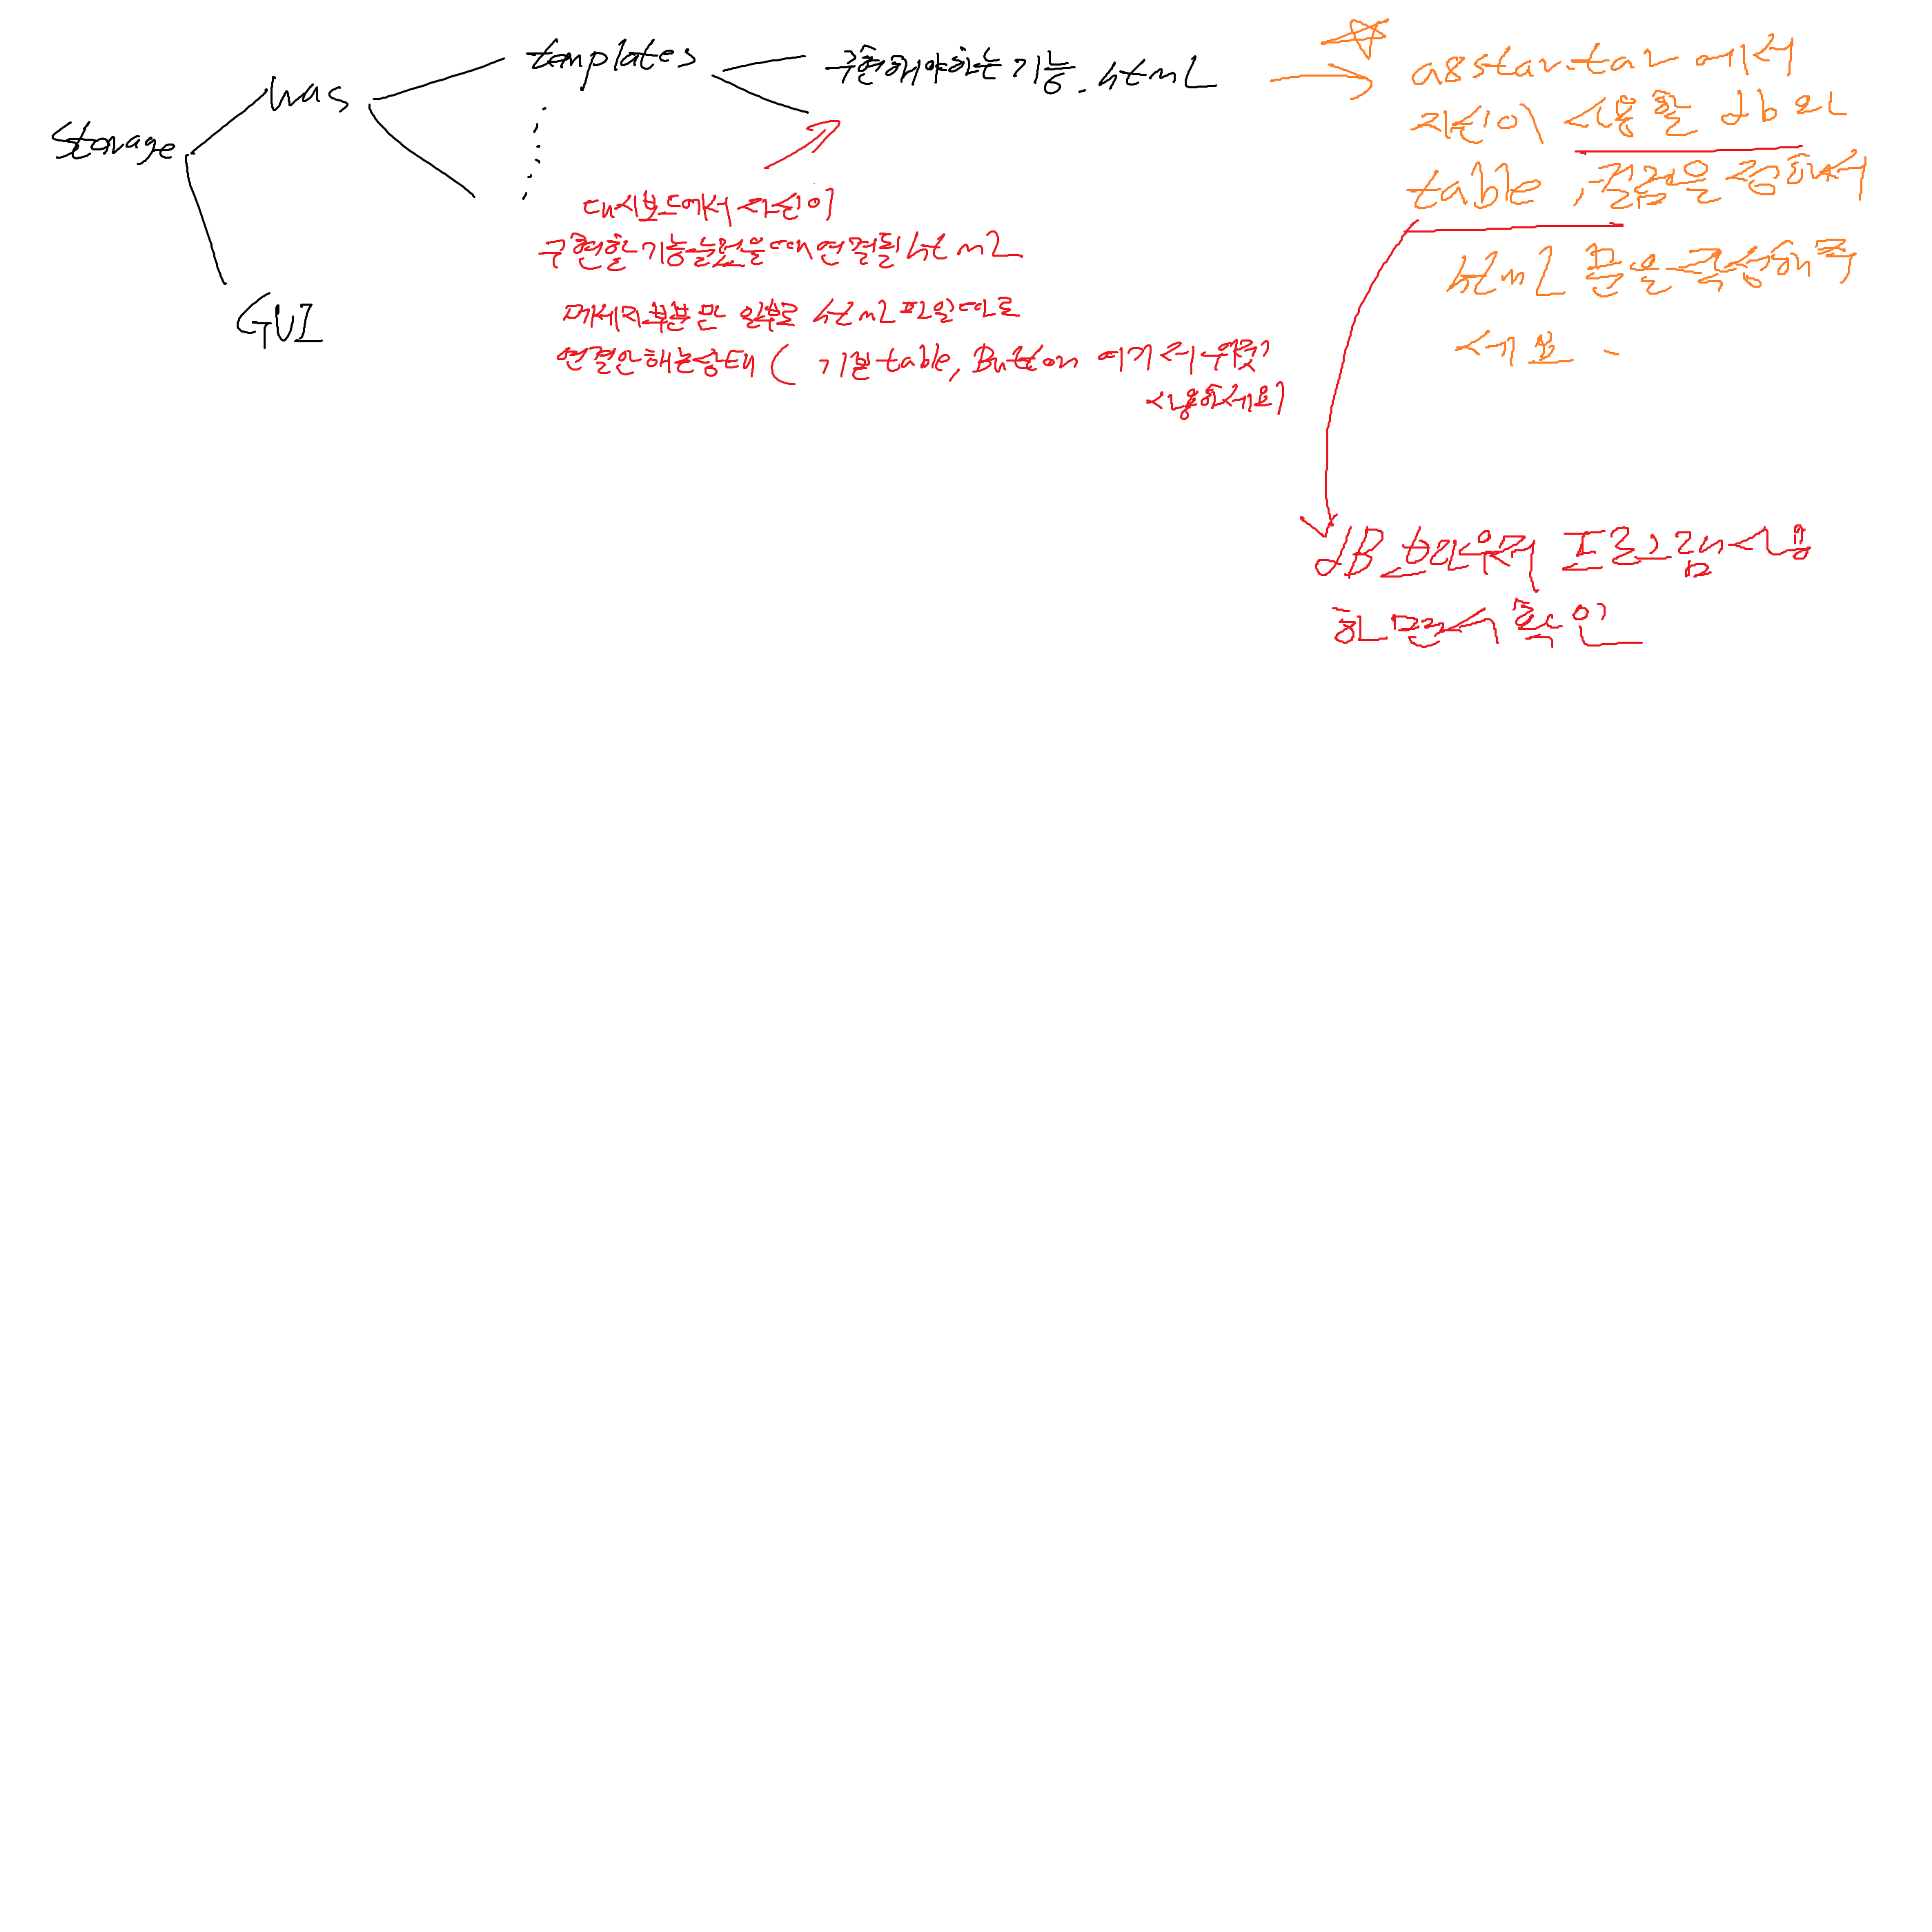 Storage
was
GUI
templates
구현해야하는기능.html
대시보드에서 자신이
구현할기능눌렀을때연결될html
메세지부분만 일부로 html파일따로
연결안해논상태 ( 기본table, Button 여기서
사용하세요)
a8star.tar 에서
자신이 사용할 db와
table , 컬럼을 정해서
html 폼을 작성해주
세요.
dB브라우저 프로그램사용
하면서 확인